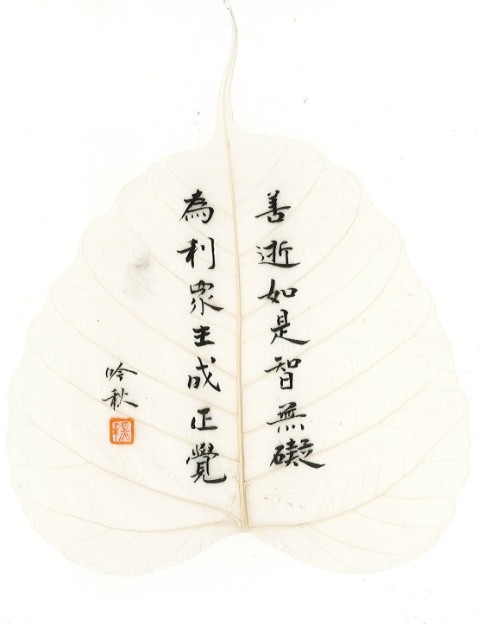 善逝如是智無礙
為利眾生成正覺
吟秋